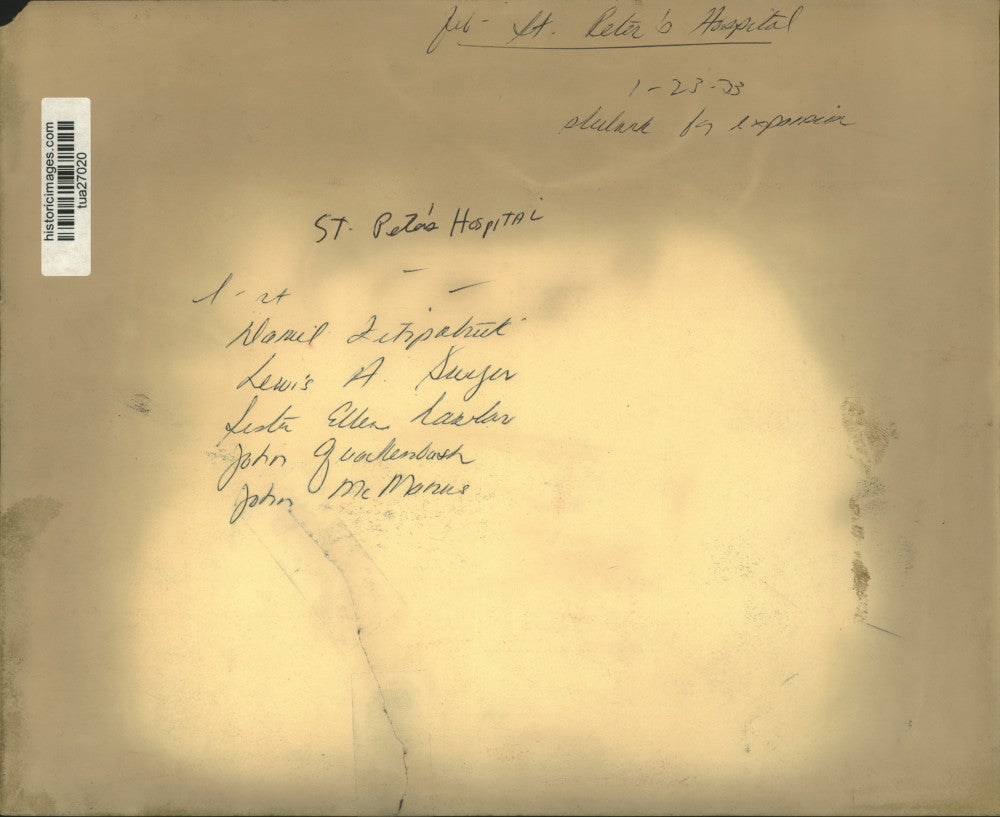 St. Peter's Hospital
1-23-73
for expansion
historicimages.com
tua27020
ST. Peter's Hospital
l-rt
Daniel Fitzpatrick
Lewis A. Swyer
Sister Ellen Lawlor
John Quackenbush
John McManus